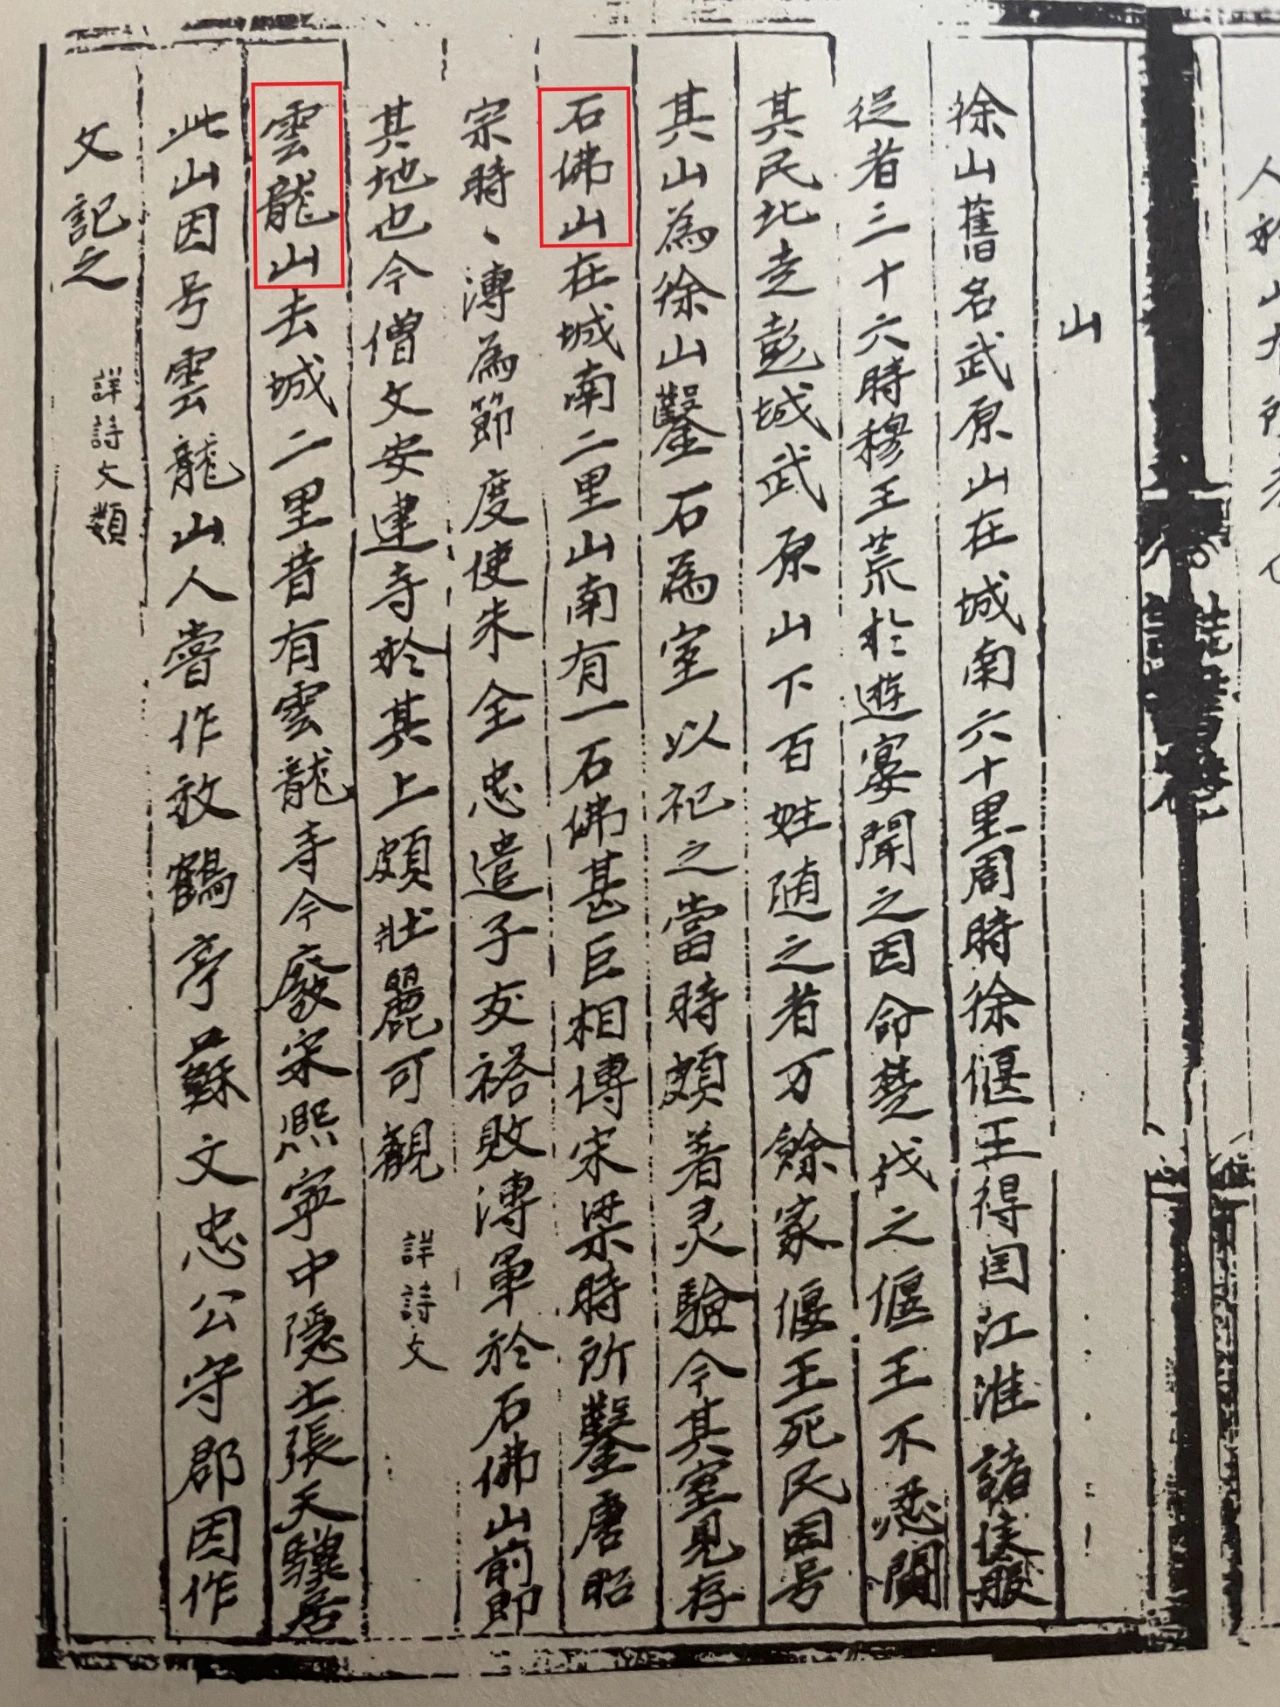 山
徐山舊名武原山在城南六十里周時徐偃王得国江淮諸侯服
從者三十六時穆王荒於遊宴聞之因命楚伐之偃王不忍鬪
其民北走彭城武原山下百姓随之者万餘家偃王死民因号
其山為徐山鑿石為室以祀之當時頗著灵驗今其室見存
石佛山在城南二里山南有一石佛甚巨相傳宋梁時所鑿唐昭
宗時、溥為節度使朱全忠遣子友裕敗溥軍於石佛山前即
其地也今僧文安建寺於其上頗壯麗可觀 詳詩文
雲龍山去城二里昔有雲龍寺今廢宋熙寧中隱士張天驥居
此山因号雲龍山人嘗作放鶴亭蘇文忠公守郡因作
文記之 詳詩文類